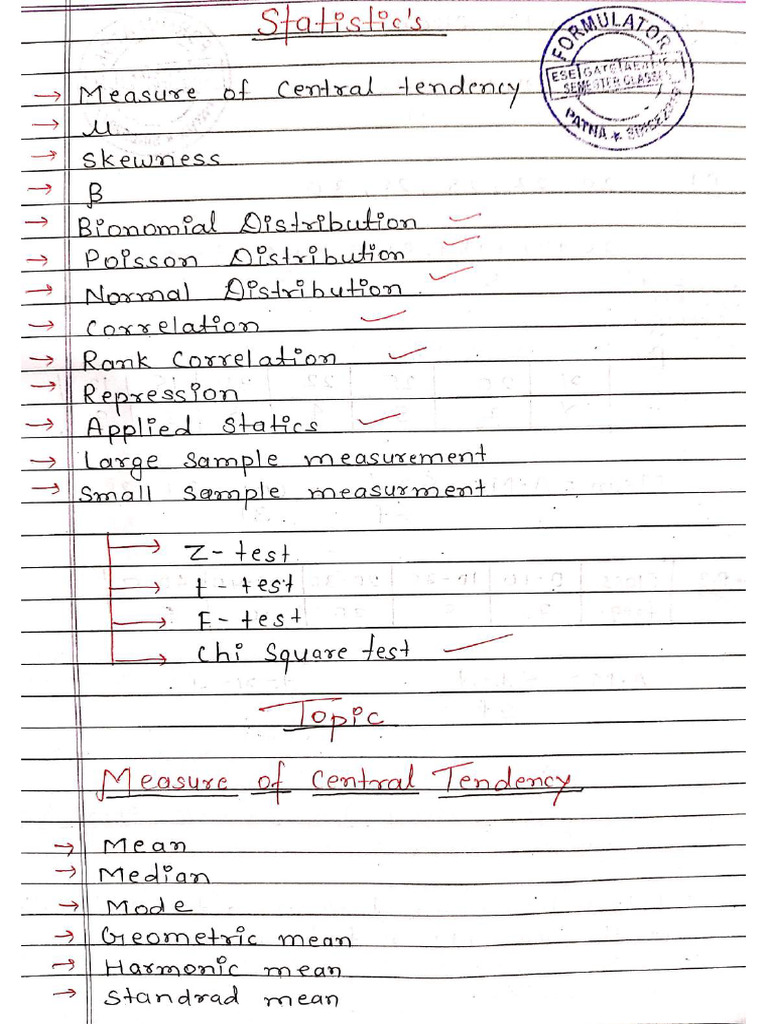 Statistic's
FORMULATOR
ESE GATE AE
SEMESTER CLASSES
PATNA ★ SINCE
→ Measure of Central tendency
→ μ.
→ Skewness
→ β
→ Bionomial Distribution ✓
→ Poisson Distribution ✓
→ Normal Distribution. ✓
→ Correlation ✓
→ Rank Correlation ✓
→ Repression
→ Applied Statics ✓
→ Large Sample measurement
→ Small Sample measurment
→ Z-test
→ t-test
→ F-test
→ Chi Square test ✓
Topic
Measure of Central Tendency
→ Mean
→ Median
→ Mode
→ Geometric mean
→ Harmonic mean
→ Standrad mean